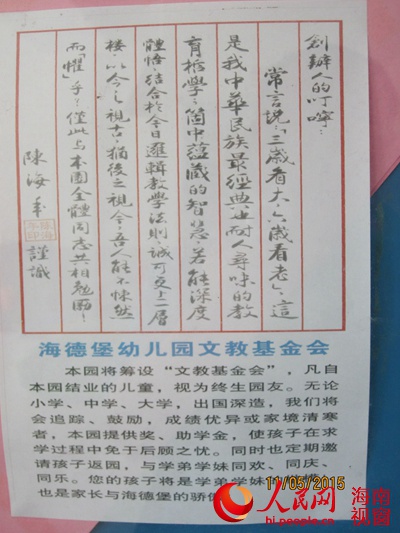 創辦人的叮嚀：
常言說：「三歲看大，六歲看老」，這
是我中華民族最經典也耐人尋味的教
育哲學，箇中蘊藏的智慧，若能深度
體悟結合於今日邏輯教學法則，誠可更上一層
樓，以今之視古，猶後之視今，吾人能不悚然
而「懼」乎！僅此与本園全體同志共相勉勵！
陳海 謹識
海德堡幼儿园文教基金会
本园将筹设“文教基金会”，凡自
本园结业的儿童，视为终生园友。无论
小学、中学、大学，出国深造，我们将
会追踪、鼓励，成绩优异或家境清寒
者，本园提供奖、助学金，使孩子在求
学过程中免于后顾之忧。同时也定期邀
请孩子返园，与学弟学妹同欢、同庆、
同乐。您的孩子将是学弟学妹
也是家长与海德堡的骄
11/05/2015
人民网 海南视窗
hi.people.cn